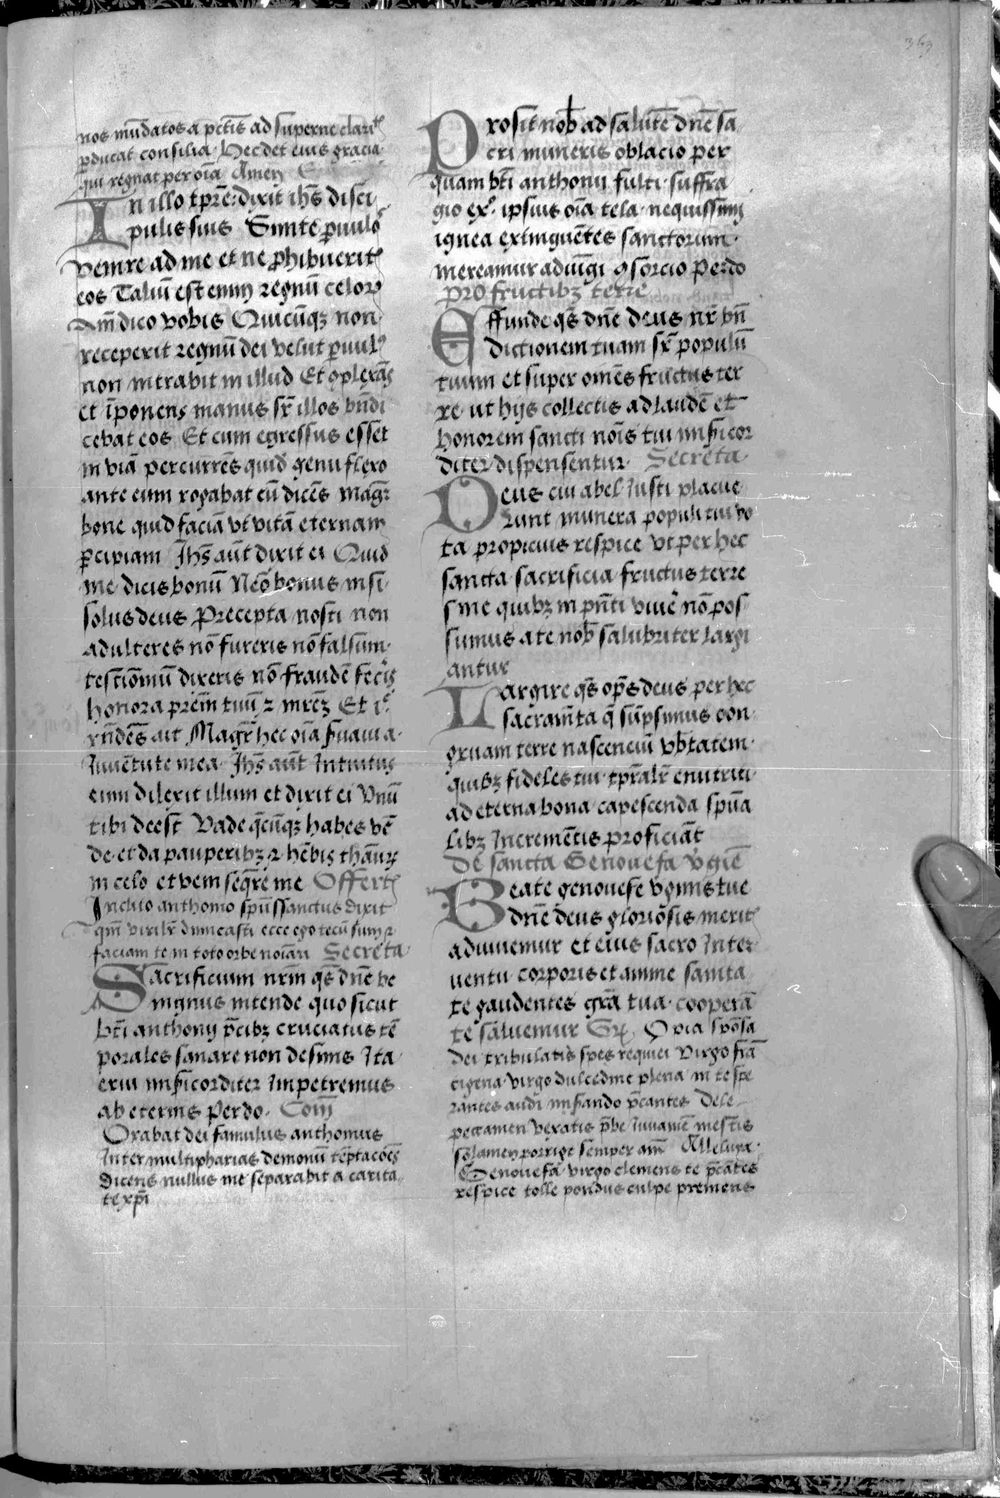 363
nos mūdatos a pctīs ad superne clarit
pducat consilia. Hec det eius gracia
qui regnat per oīa Amen E
In illo tpre: dixit ihs disci
pulis suis Sinite puulos
venire ad me et ne phibuerit
eos Taliū est enim regnū celor
Amē dico vobis Quicūqz non
receperit regnū dei velut puul
non intrabit in illud Et cplexās
et īponens manus sr illos bndi
cebat eos Et cum egressus esset
in viā percurrēs quid genu flexo
ante eum rogabat eū dicēs Magr
bone quid faciā vt vitā eternam
pcipiam Ihs aūt dixit ei Quid
me dicis bonū Nēo bonus nisi
solus deus Precepta nosti non
adulteres nō fureris nō falsum
testīomū dixeris nō fraudē fecis
honora prēm tuū z mrēz Et i
rndēs ait Magr hec oīa suaui a
Iuuētute mea Ihs aūt Intuitus
eum dilexit illum et dixit ei Vnū
tibi deest Vade qcūqz habes vē
de et da pauperibz z hēbis thaur
in celo et veni seqre me Offert
Inclito anthonio spūssanctus dixit
qm virilr dimicasti ecce ego tecū sum z
faciam te in toto orbe noīari Secreta
Sacrificium nrm qs dne be
nignus intende quo sicut
bti anthony pcibz cruciatus tē
porales sanare non desinis Ita
erui misicorditer Impetremus
ab eternis Perdo. Com
Orabat dei famulus anthonius
Inter multipharias demonū tēptacoēs
dicens nullus me separabit a carita
te xpi
Prosit nob ad salutē dne sa
cri muneris oblacio per
quam bti anthony fulti suffra
gio ex ipsius oīa tela nequissimi
ignea extinguētes sanctorum
mereamur adiūgi csorcio Perdo
pro fructibz terre
Effunde qs dne deus nr bn
dictionem tuam sr populū
tuum et super omēs fructus ter
re. ut hijs collectis ad laudē et
honorem sancti nōis tui misicor
diter dispensentur. Secreta
Deus cui abel Iusti placue
runt munera populi tui vo
ta propicius respice vt per hec
sancta sacrificia fructus terre
sine quibz in pnti viuē nō pos
sumus a te nob salubriter largi
antur
Largire qs ops deus per hec
sacramta q sūpsimus con
gruam terre nasceneiū vbtatem
quibz fideles tui tpralr enutriti
ad eterna bona capescenda spūa
libz Incremētis proficiāt
De sancta Genouefa vgīe
Beate genouefe vgīnis tue
dne deus gloriōsis merit
adiuuemur et eius sacro Inter
uentu corporis et anime sanita
te gaudentes gra tua cooperā
te saluemur Sr, O pia spōsa
dei tribulatis spes requiei Virgo frā
cigena virgo dulcedine plena in te spe
rantes audi misando pcantes Dele
pectamen vexatis pbe Iuuamē mestis
solamen porrige semper am Alleluya
Genouefa virgo clemens te pcātes
respice tolle pondus culpe premens